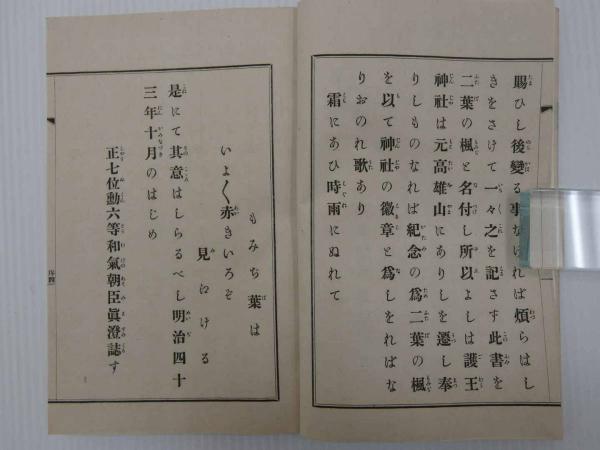 賜ひし後變る事なければ煩らはし
きをさけて一々之を記さす此書を
二葉の楓と名付し所以よしは護王
神社は元高雄山にありしを遷し奉
りしものなれば紀念の爲二葉の楓
を以て神社の徽章と爲しをればな
りおのれ歌あり
霜にあひ時雨にぬれて
もみち葉は
いよ〱赤きいろぞ
見にける
是にて其意はしらるべし明治四十
三年十月のはじめ
正七位勳六等和氣朝臣眞澄誌す